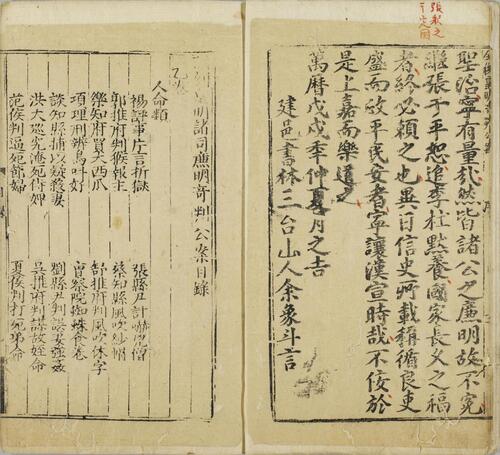 聖治寧有量哉然皆諸公之廉明故不冤
繼張于平恕追李杜默養國家長久之福
者終必賴之也異日信史所載稱循良吏
盛而政平民安者寧讓漢宣時哉不佞於
是上嘉而樂道之
萬曆戊戌季仲夏月之吉
建邑書林三台山人余象斗言
明諸司廉明奇判公案目錄
人命類
楊評事片言折獄
張縣尹計嚇凶僧
郭推府判猴報主
蔡知縣風吹紗帽
樂知府買大西瓜
舒推府判風吹休字
項理刑辨鳥叫好
曾察院蜘蛛食卷
談知縣捕以疑殺妻
劉縣尹判誤妻強姦
洪大巡究淹死侍婢
吳推府判謀故姪命
范侯判逼死節婦
夏侯判打死弟命